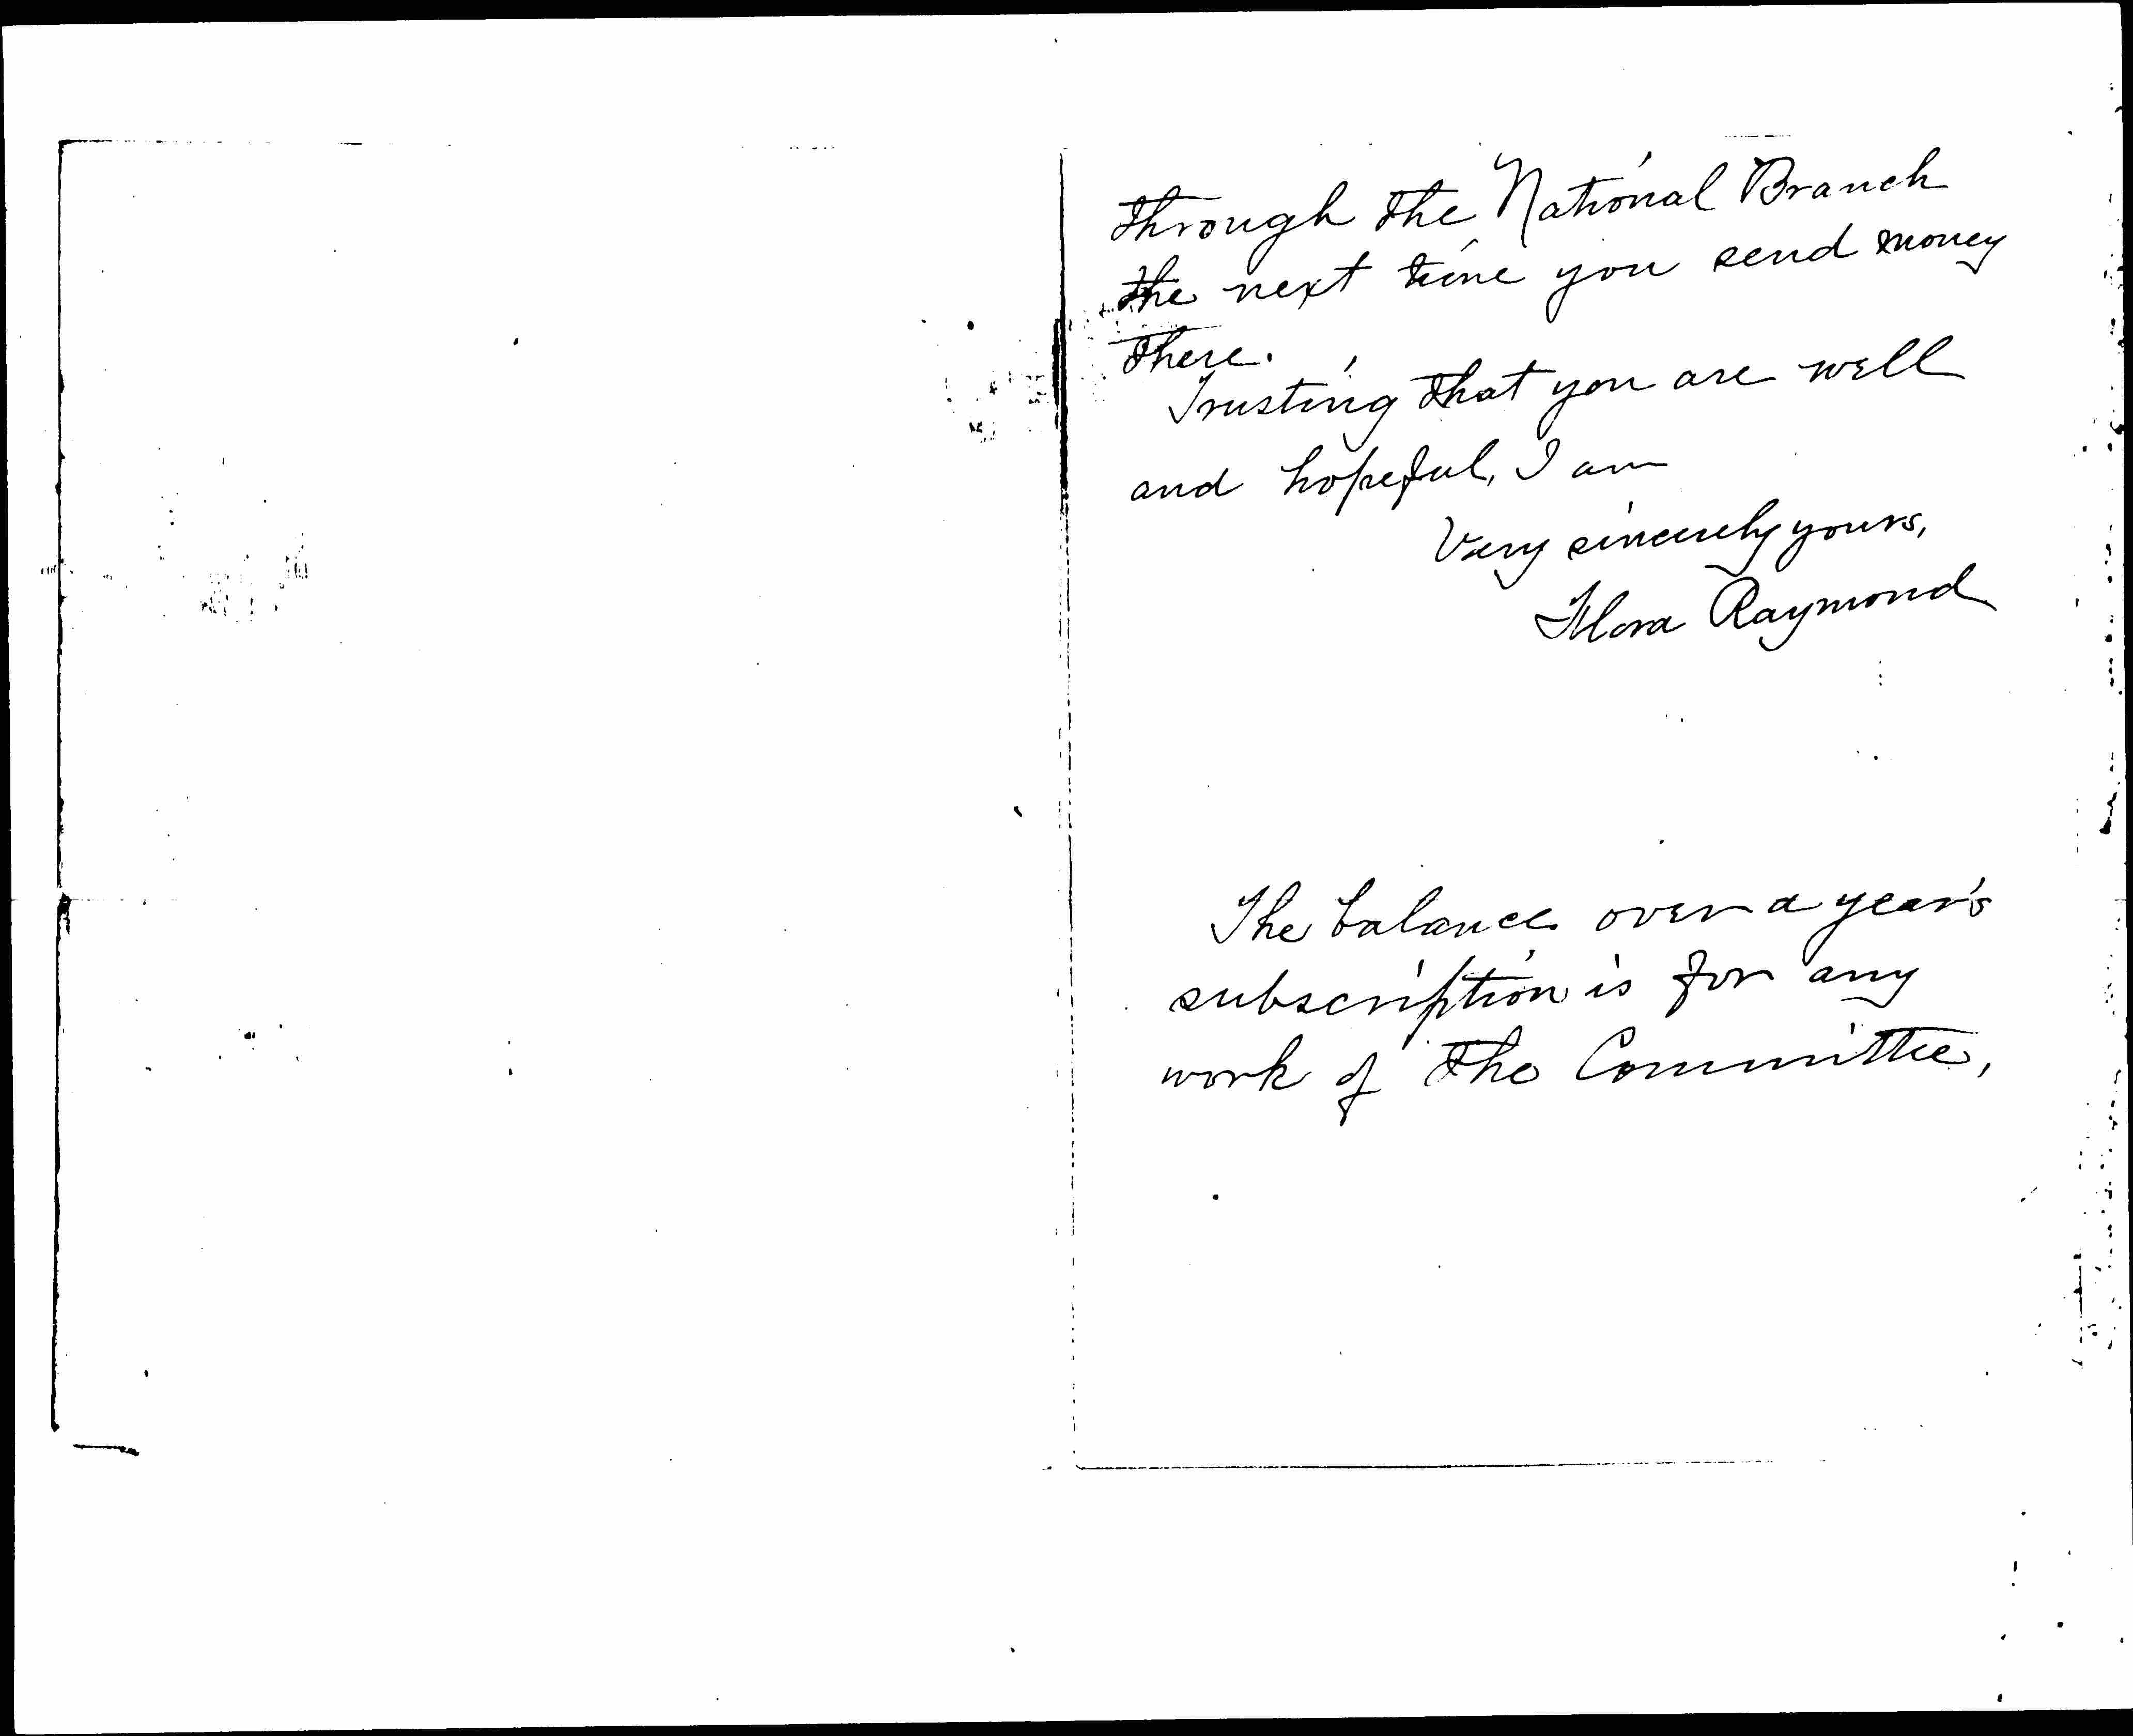 through the National Branch
the next time you send money
there.
Trusting that you are well
and hopeful, I am
Very sincerely yours,
Flora Raymond
The balance over a year's
subscription is for any
work of the Committee,